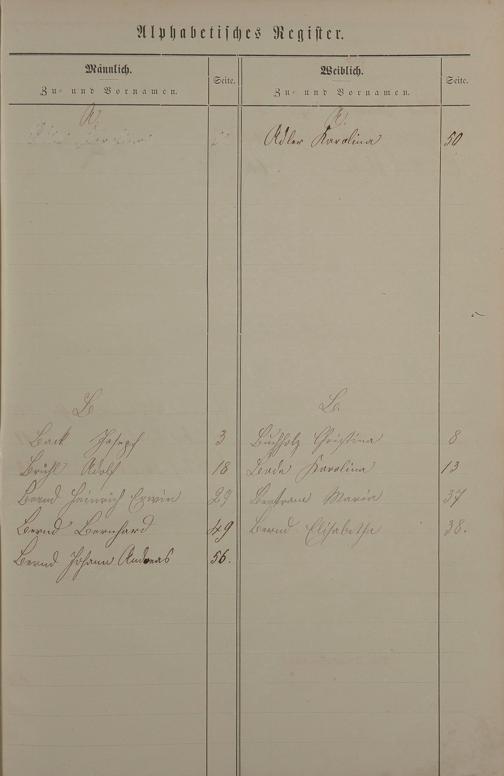 Alphabetisches Register.
Männlich.
Zu- und Vornamen.
Seite.
A.
B
Back Joseph 3
Brühl Adolf 18
Bernd Heinrich Erwin 29
Bernd Bernhard 49
Bernd Johann Andreas 56.
Weiblich.
Zu- und Vornamen.
Seite.
A.
Adler Karolina 50
B.
Buchholz Christina 8
Karolina 13
Bertram Maria 37
Bernd Elisabetha 38.